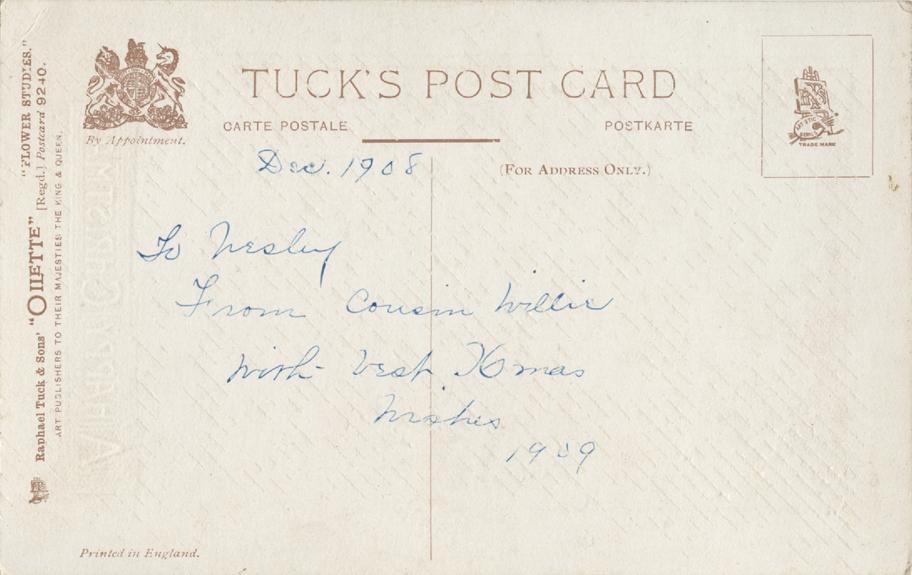 TUCK'S POST CARD
CARTE POSTALE
POSTKARTE
(FOR ADDRESS ONLY.)
By Appointment.
TRADE MARK
Dec. 1908
To Wesley
From Cousin Willie
With best Xmas
Wishes
1909
"FLOWER STUDIES."
Raphael Tuck & Sons' "OILETTE" [Regd.] Postcard 9240.
ART PUBLISHERS TO THEIR MAJESTIES THE KING & QUEEN.
Printed in England.